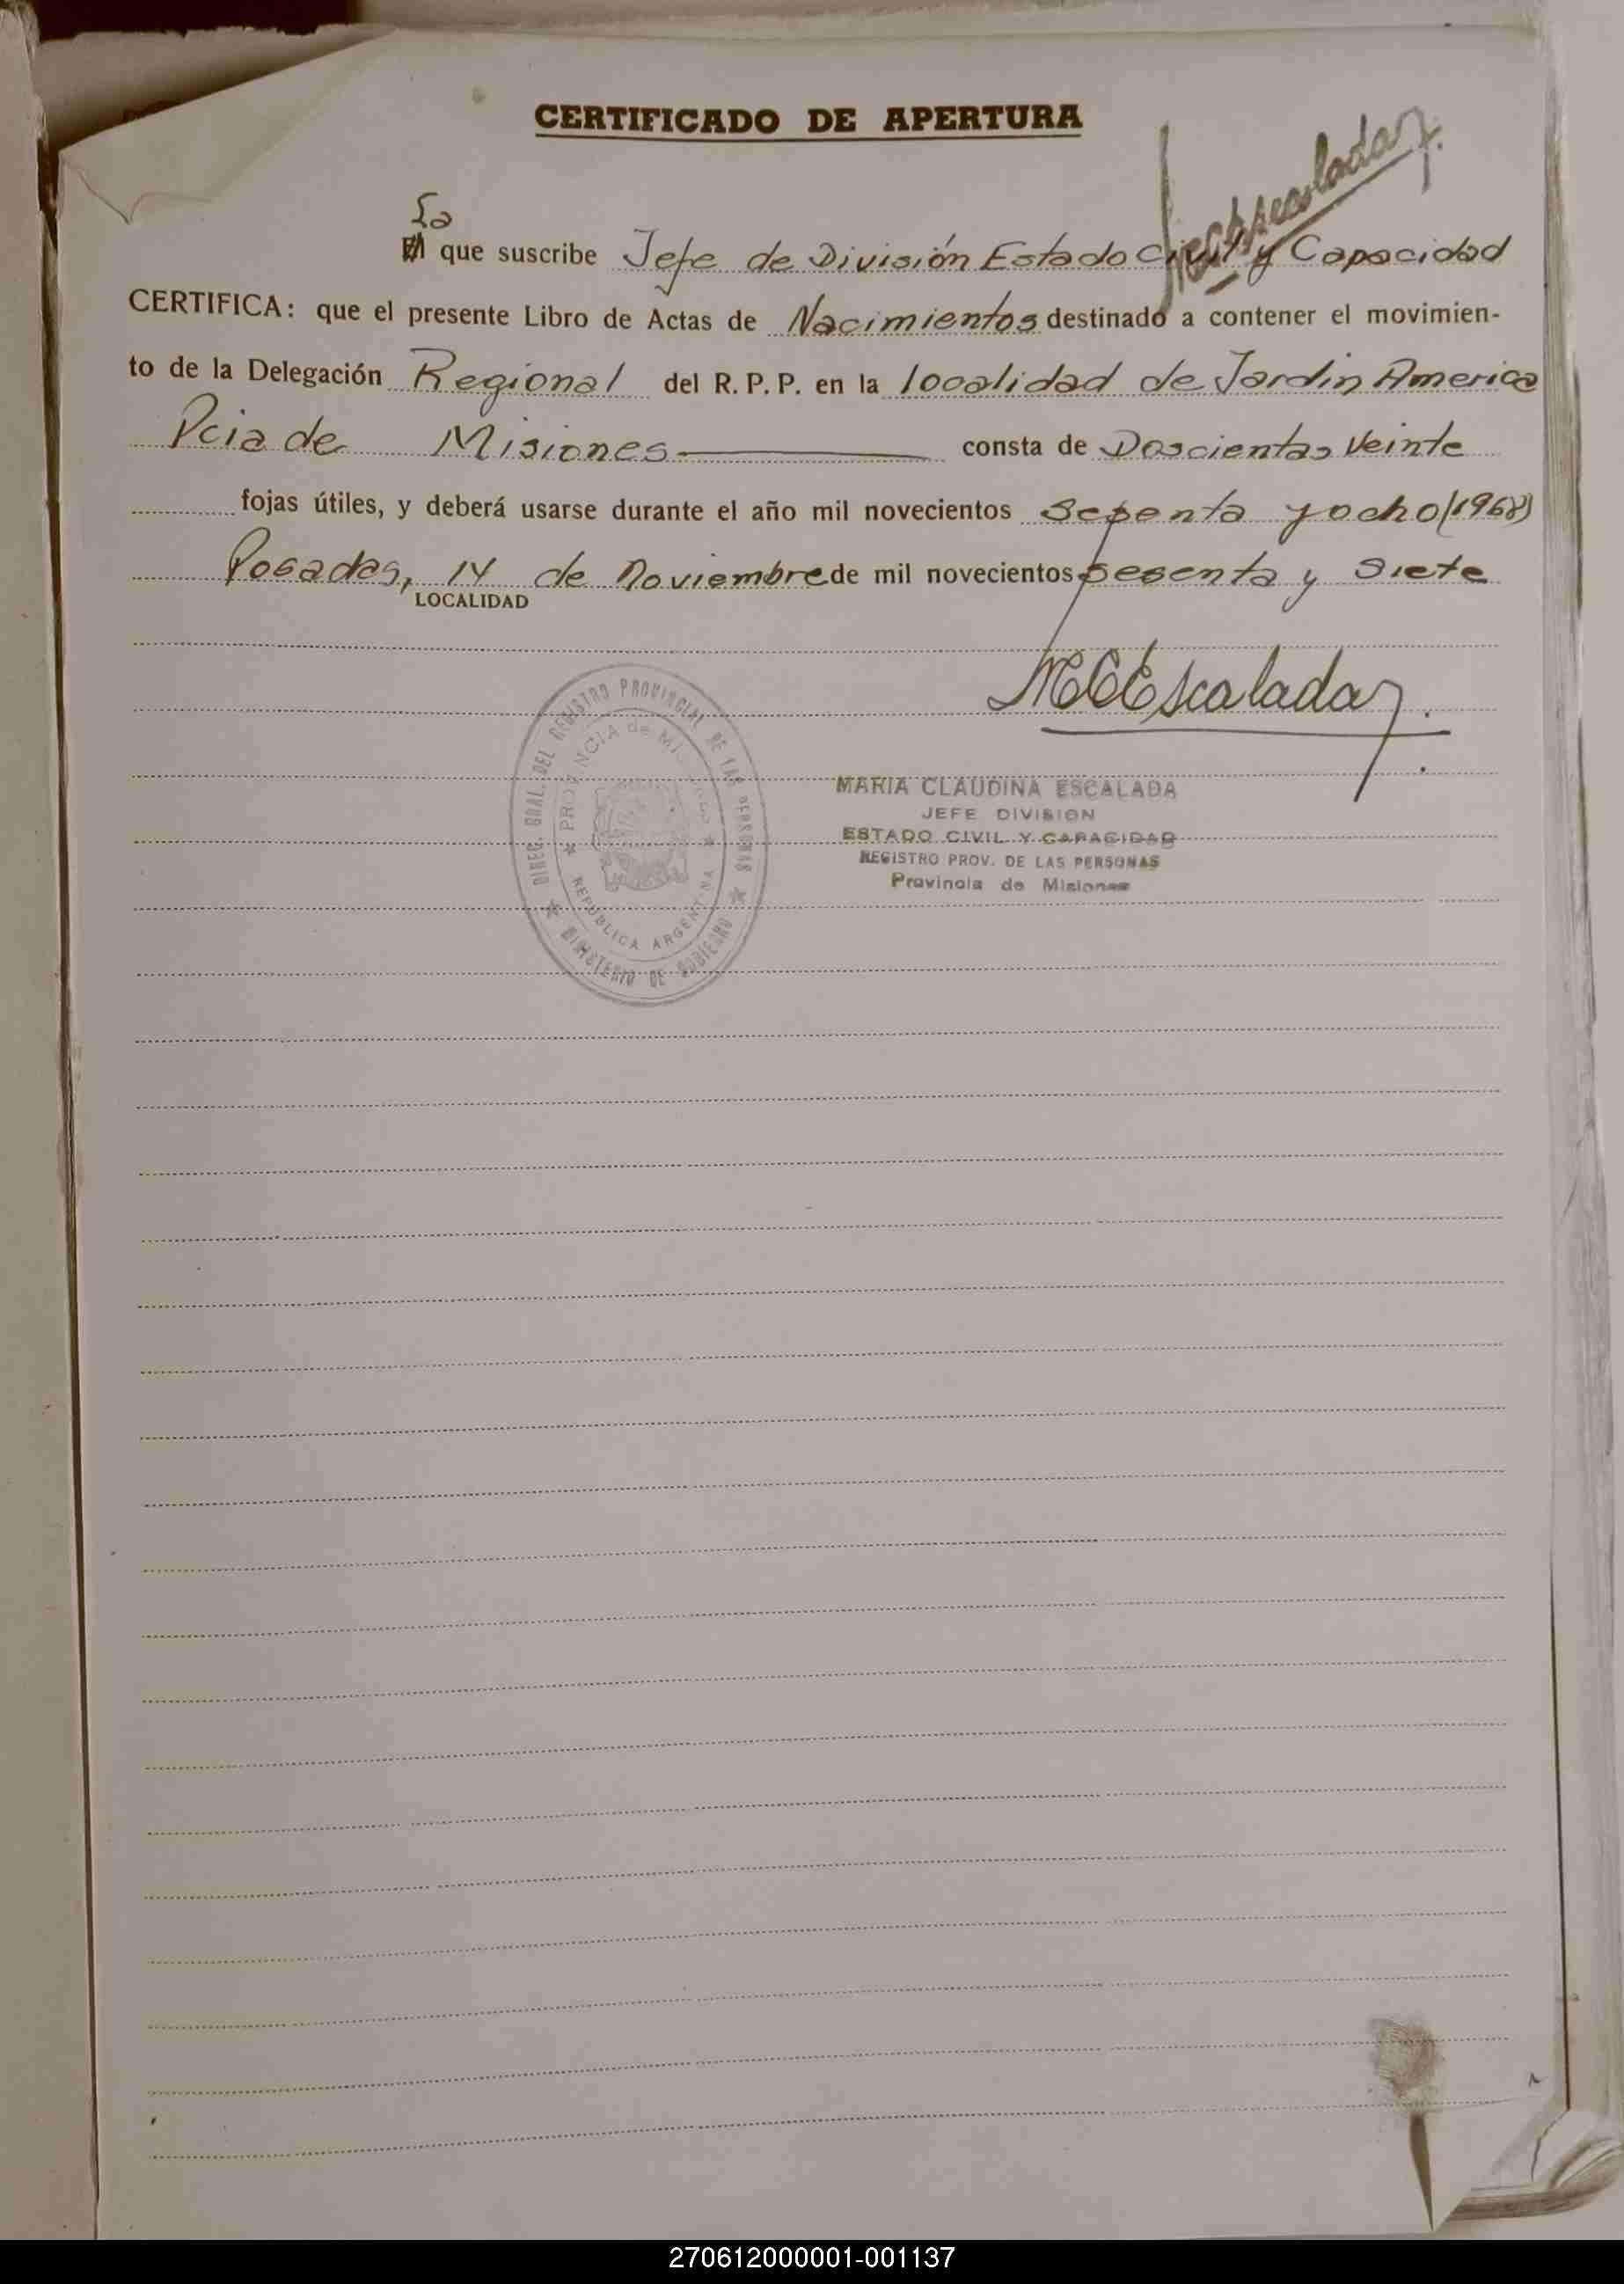 CERTIFICADO DE APERTURA
La
El que suscribe Jefe de División Estado Civil y Capacidad
CERTIFICA: que el presente Libro de Actas de Nacimientos destinado a contener el movimien-
to de la Delegación Regional del R. P. P. en la localidad de Jardin America
Pcia de Misiones consta de Doscientas Veinte
fojas útiles, y deberá usarse durante el año mil novecientos Sesenta y ocho (1968)
Posadas, 14 de Noviembre de mil novecientos sesenta y Siete
LOCALIDAD
MCEscalada
DIREC. GRAL. DEL REGISTRO PROVINCIAL DE LAS PERSONAS
PROVINCIA de Misiones
REPUBLICA ARGENTINA
MINISTERIO DE GOBIERNO
MARIA CLAUDINA ESCALADA
JEFE DIVISION
ESTADO CIVIL Y CAPACIDAD
REGISTRO PROV. DE LAS PERSONAS
Provincia de Misiones
270612000001-001137